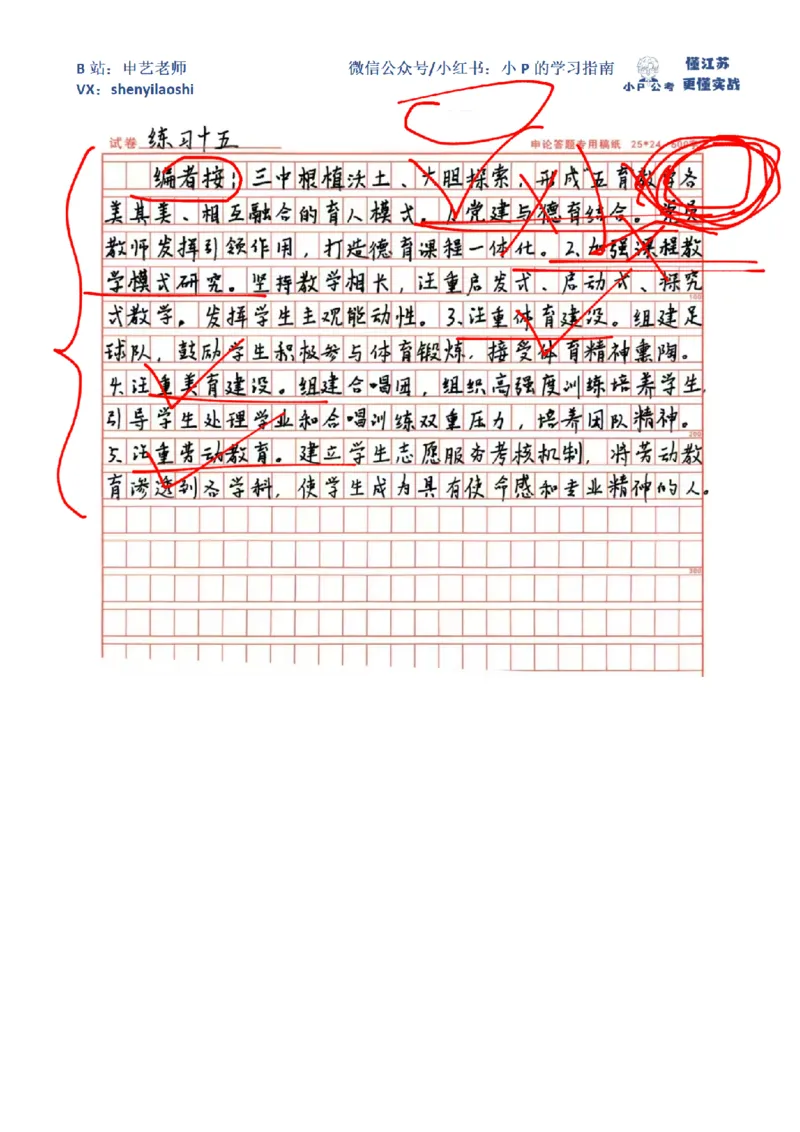 B 站：申艺老师
微信公众号/小红书：小 P 的学习指南
VX：shenyilaoshi
小P公考
懂江苏
更懂实战
试卷 练习十五
申论答题专用稿纸 25*24
编者按：三中根植沃土、大胆探索，形成五育教学各
美其美、相互融合的育人模式。1.党建与德育结合。党员
教师发挥引领作用，打造德育课程一体化。2.加强课程教
学模式研究。坚持教学相长，注重启发式、启动式、探究
100
式教学。发挥学生主观能动性。3.注重体育建设。组建足
球队，鼓励学生积极参与体育锻炼，接受体育精神熏陶。
4.注重美育建设。组建合唱团，组织高强度训练培养学生，
引导学生处理学业和合唱训练双重压力，培养团队精神。
200
5.注重劳动教育。建立学生志愿服务考核机制，将劳动教
育渗透到各学科，使学生成为具有使命感和专业精神的人。
300